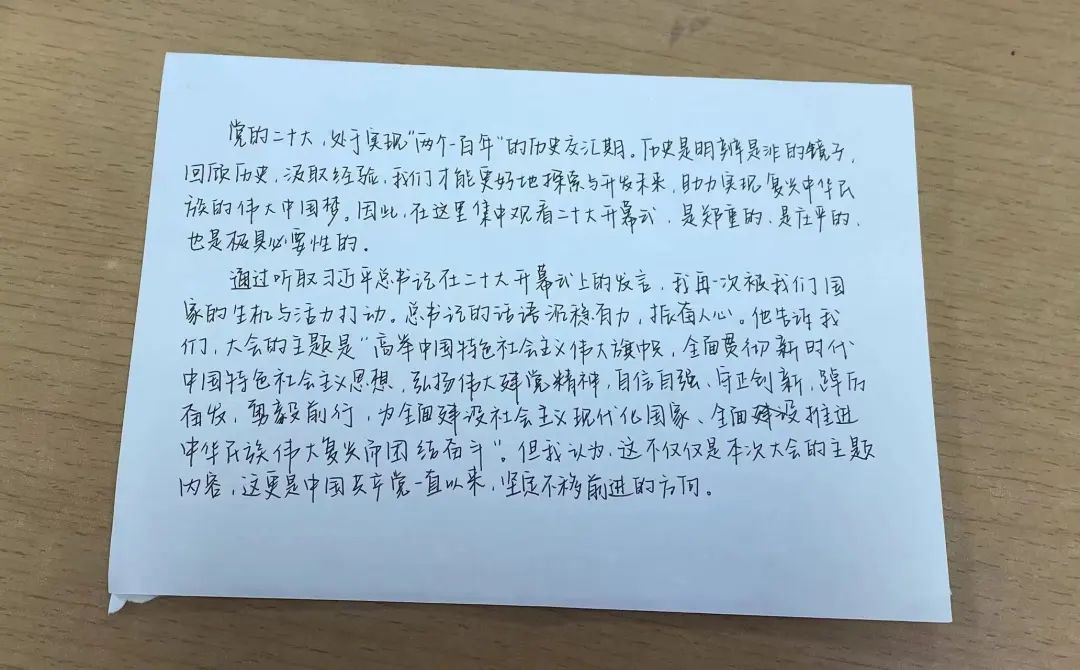 党的二十大，处于实现“两个一百年”的历史交汇期。历史是明辨是非的镜子，
回顾历史，汲取经验，我们才能更好地探索与开发未来，助力实现复兴中华民
族的伟大中国梦。因此，在这里集中观看二十大开幕式，是郑重的、是庄严的、
也是极具必要性的。
通过听取习近平总书记在二十大开幕式上的发言，我再一次被我们国
家的生机与活力打动。总书记的话语沉稳有力，振奋人心。他告诉我
们，大会的主题是“高举中国特色社会主义伟大旗帜，全面贯彻新时代
中国特色社会主义思想，弘扬伟大建党精神，自信自强、守正创新，踔厉
奋发、勇毅前行，为全面建设社会主义现代化国家、全面建设推进
中华民族伟大复兴而团结奋斗”。但我认为，这不仅仅是本次大会的主题
内容，这更是中国共产党一直以来，坚定不移前进的方向。